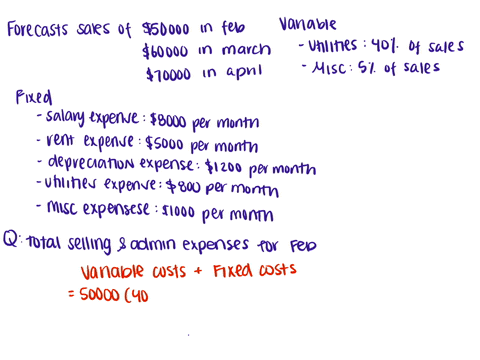 Forecasts sales of $50000 in feb
$60000 in march
$70000 in april
Variable
- Utilities : 40% of sales
- Misc : 5% of sales
Fixed
- salary expense : $8000 per month
- rent expense : $5000 per month
- depreciation expense : $1200 per month
- utilities expense : $800 per month
- misc expensese : $1000 per month
Q: total selling & admin expenses for Feb
Variable costs + Fixed costs
= 50000 (40